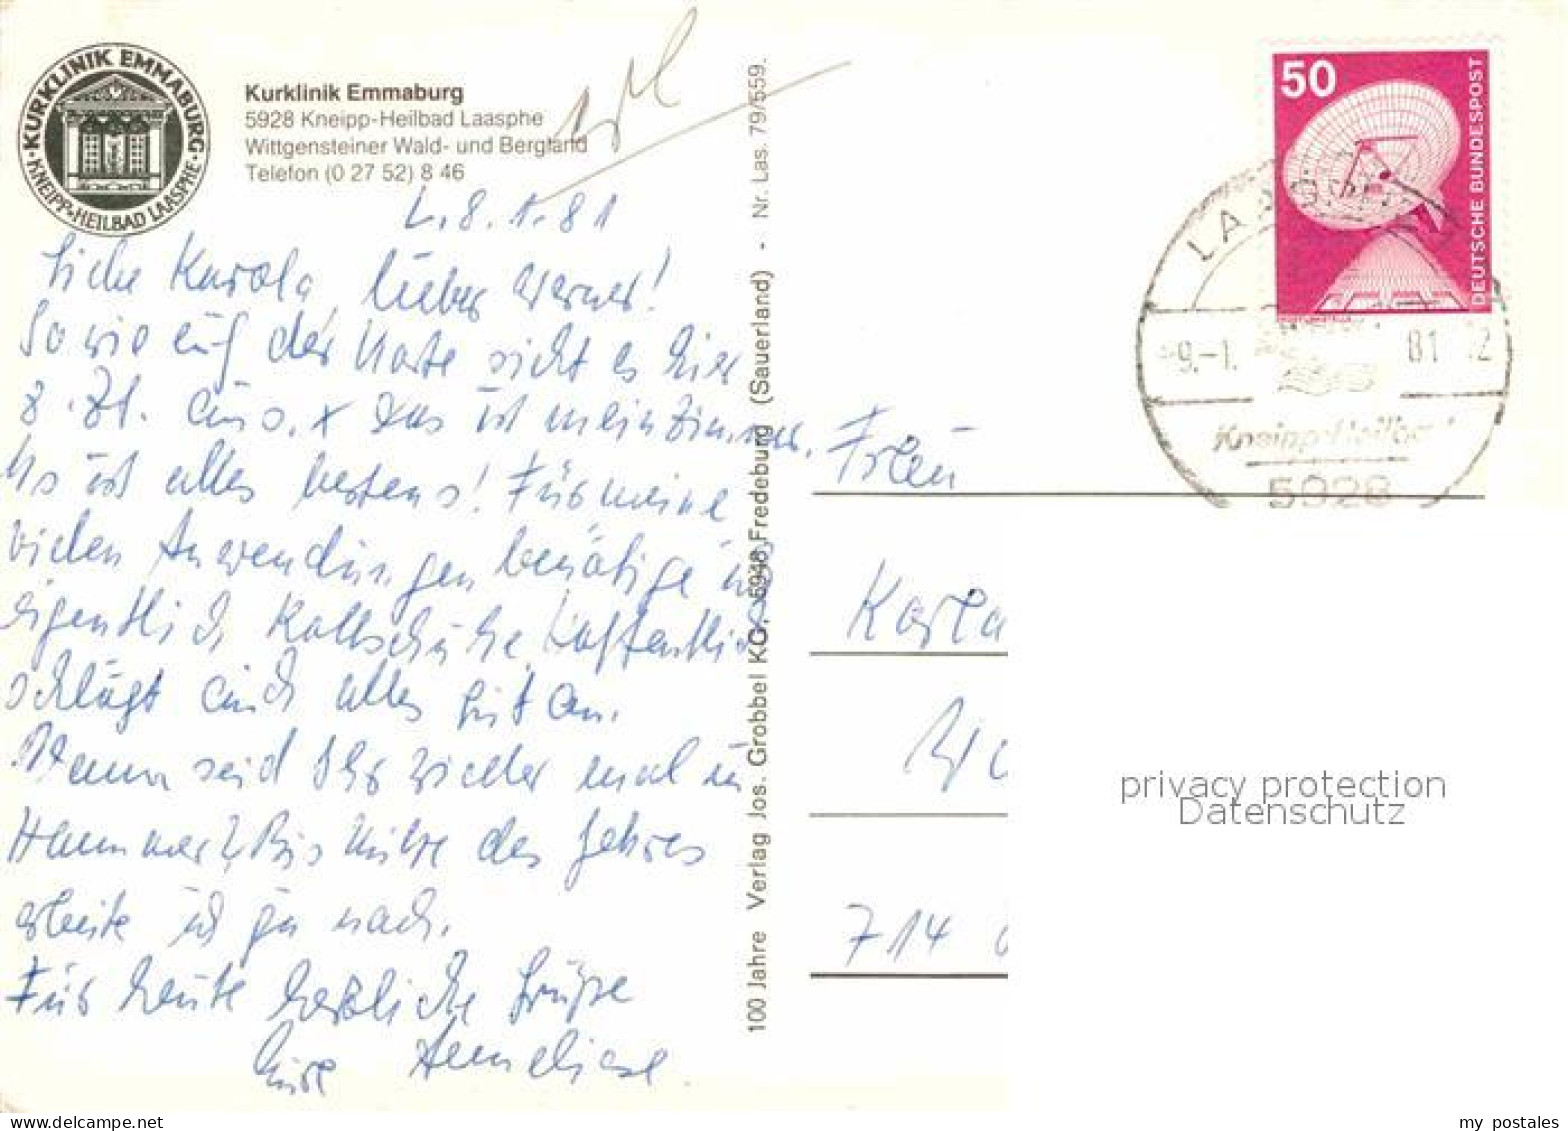 KURKLINIK EMMABURG
KNEIPP-HEILBAD LAASPHE
Kurklinik Emmaburg
5928 Kneipp-Heilbad Laasphe
Wittgensteiner Wald- und Bergland
Telefon (0 27 52) 8 46
L. 8.1.81
Liebe Karola, lieber Werner!
So wie auf der Karte sieht es hier
z. Zt. aus. x Das ist mein Zimmer.
Es ist alles bestens! Für meine
vielen Anwendungen benötige ich
eigentlich Rollschuhe. Hoffentlich
schlägt auch alles gut an.
Wann seid Ihr wieder mal in
Hammer? Bis Mitte des Jahres
arbeite ich ja noch.
Für heute herzliche Grüße
Eure Anneliese
100 Jahre Verlag Jos. Grobbel KG, 5948 Fredeburg (Sauerland) - Nr. Las. 79/559.
50
DEUTSCHE BUNDESPOST
-9.-1. 81 12
Kneipp-Heilbad
5928
Frau
Karola
714
privacy protection
Datenschutz
my postales